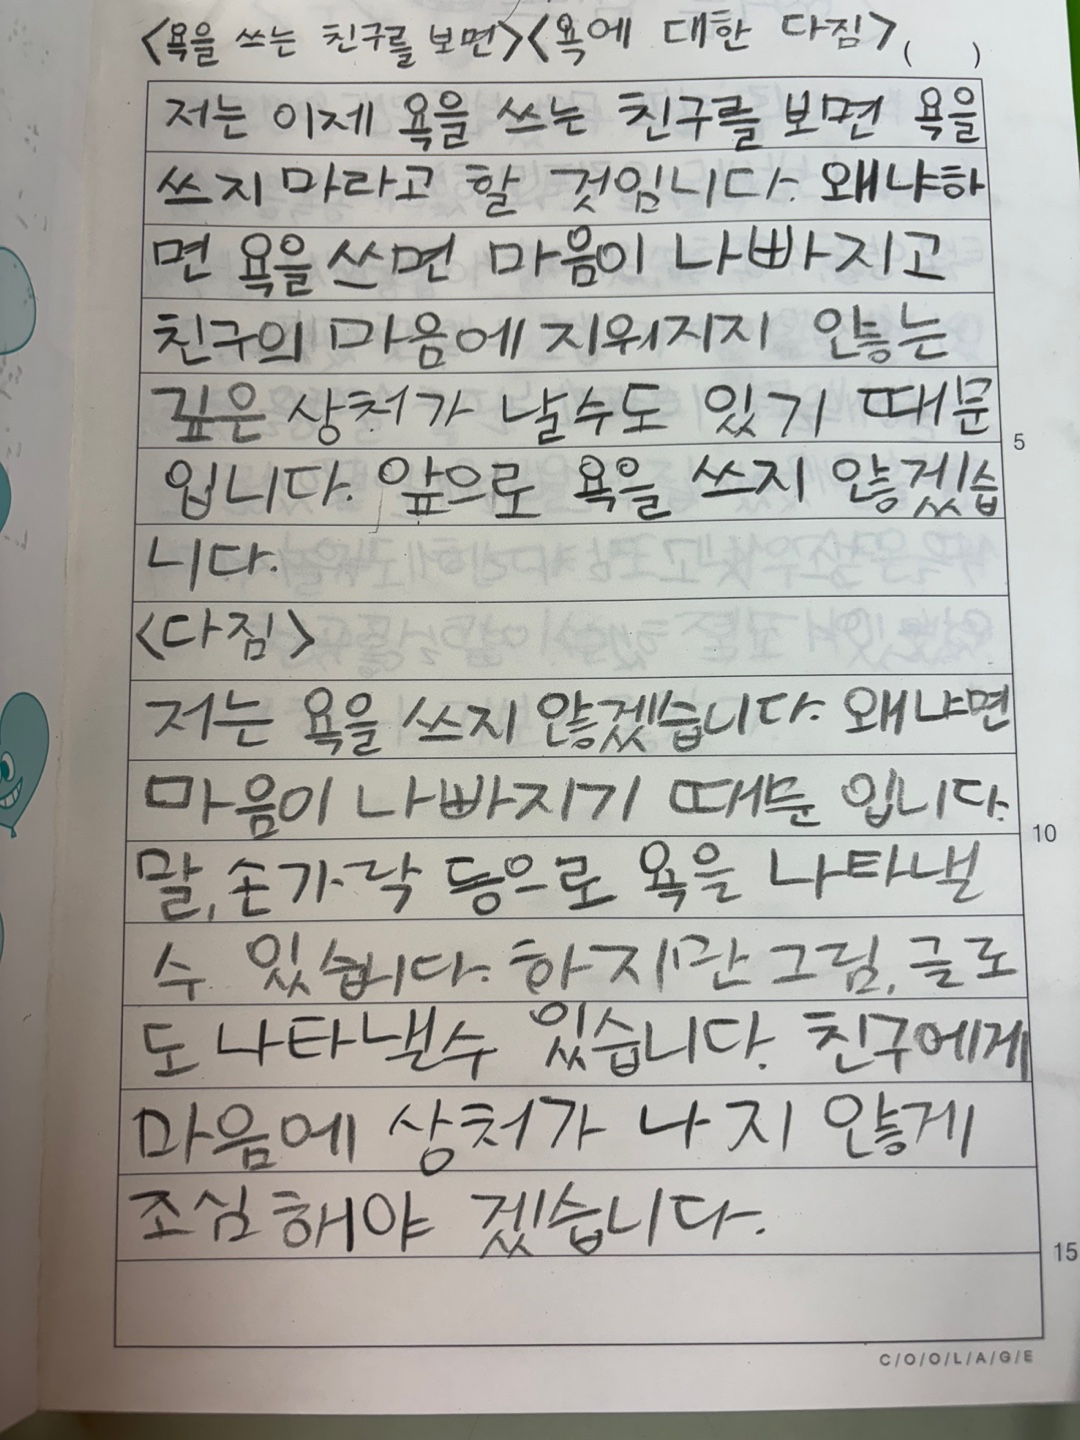 <욕을 쓰는 친구를 보면><욕에 대한 다짐>( )
저는 이제 욕을 쓰는 친구를 보면 욕을
쓰지 마라고 할 것임니다. 왜냐하
면 욕을 쓰면 마음이 나빠지고
친구의 마음에 지워지지 안항는
깊은 상처가 날수도 있기 때문
입니다. 앞으로 욕을 쓰지 않겠습
니다.
<다짐>
저는 욕을 쓰지 않겠습니다. 왜냐면
마음이 나빠지기 때문 입니다.
말, 손가락 등으로 욕을 나타낼
수 있습니다. 하지만 그림, 글로
도 나타낼수 있습니다. 친구에게
마음에 상처가 나지 않게
조심해야 겠습니다.
5
10
15
C/O/O/L/A/G/E